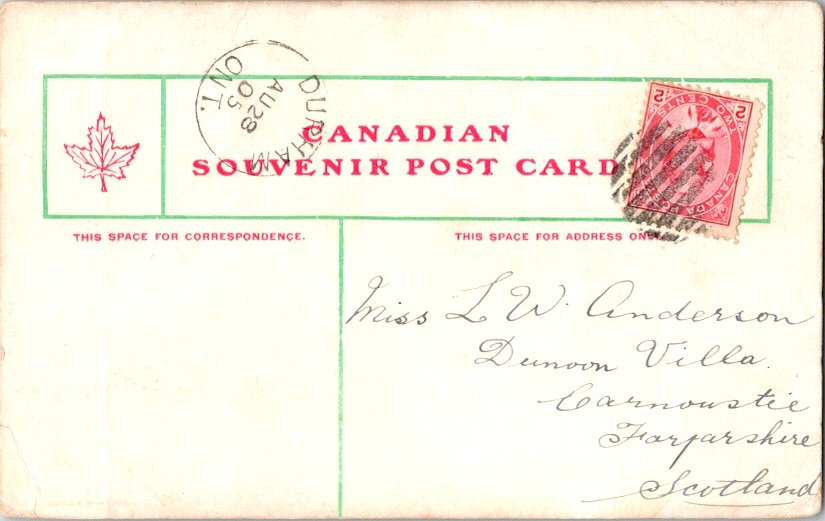 DURHAM
AU 28
05
ONT.
CANADIAN
SOUVENIR POST CARD
2 2
TWO CENTS
CANADA PO
THIS SPACE FOR CORRESPONDENCE.
THIS SPACE FOR ADDRESS ON
Miss L W. Anderson
Dunoon Villa.
Carnoustie
Forfarshire
Scotland